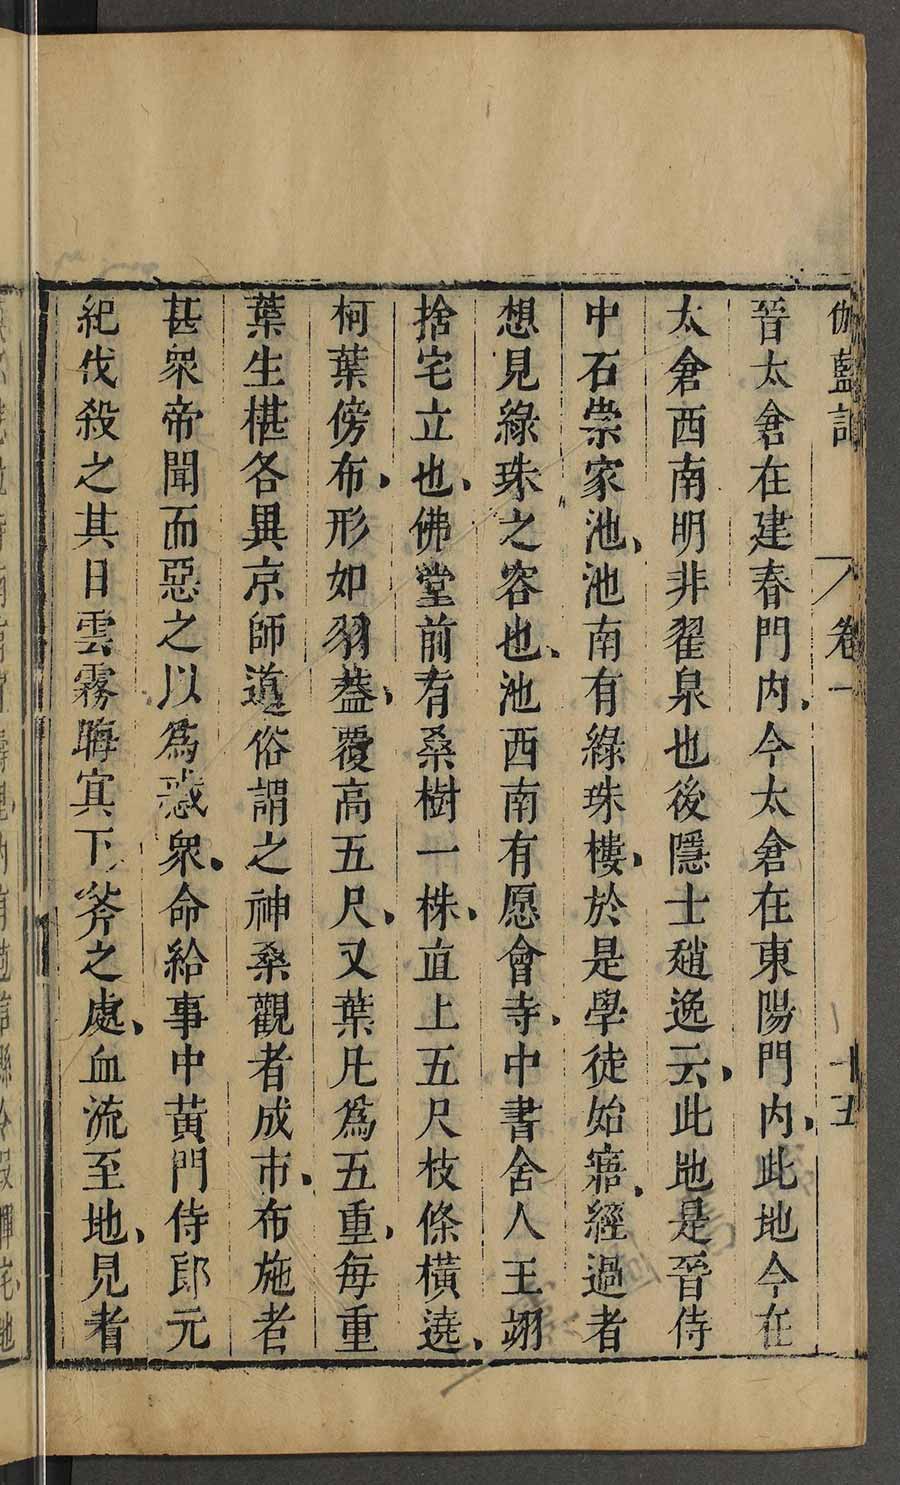 伽藍記 卷一 十五
晉太倉在建春門内今太倉在東陽門内此地今在
太倉西南明非翟泉也後隱士趙逸云此地是晉侍
中石崇家池池南有綠珠樓於是學徒始寤經過者
想見綠珠之容也池西南有愿會寺中書舍人王翊
捨宅立也佛堂前有桑樹一株直上五尺枝條橫遶
柯葉傍布形如羽葢覆高五尺又葉凡爲五重每重
葉生椹各異京師道俗謂之神桑觀者成市布施者
甚衆帝聞而惡之以爲惑衆命給事中黄門侍郎元
紀伐殺之其日雲霧晦冥下斧之處血流至地見者